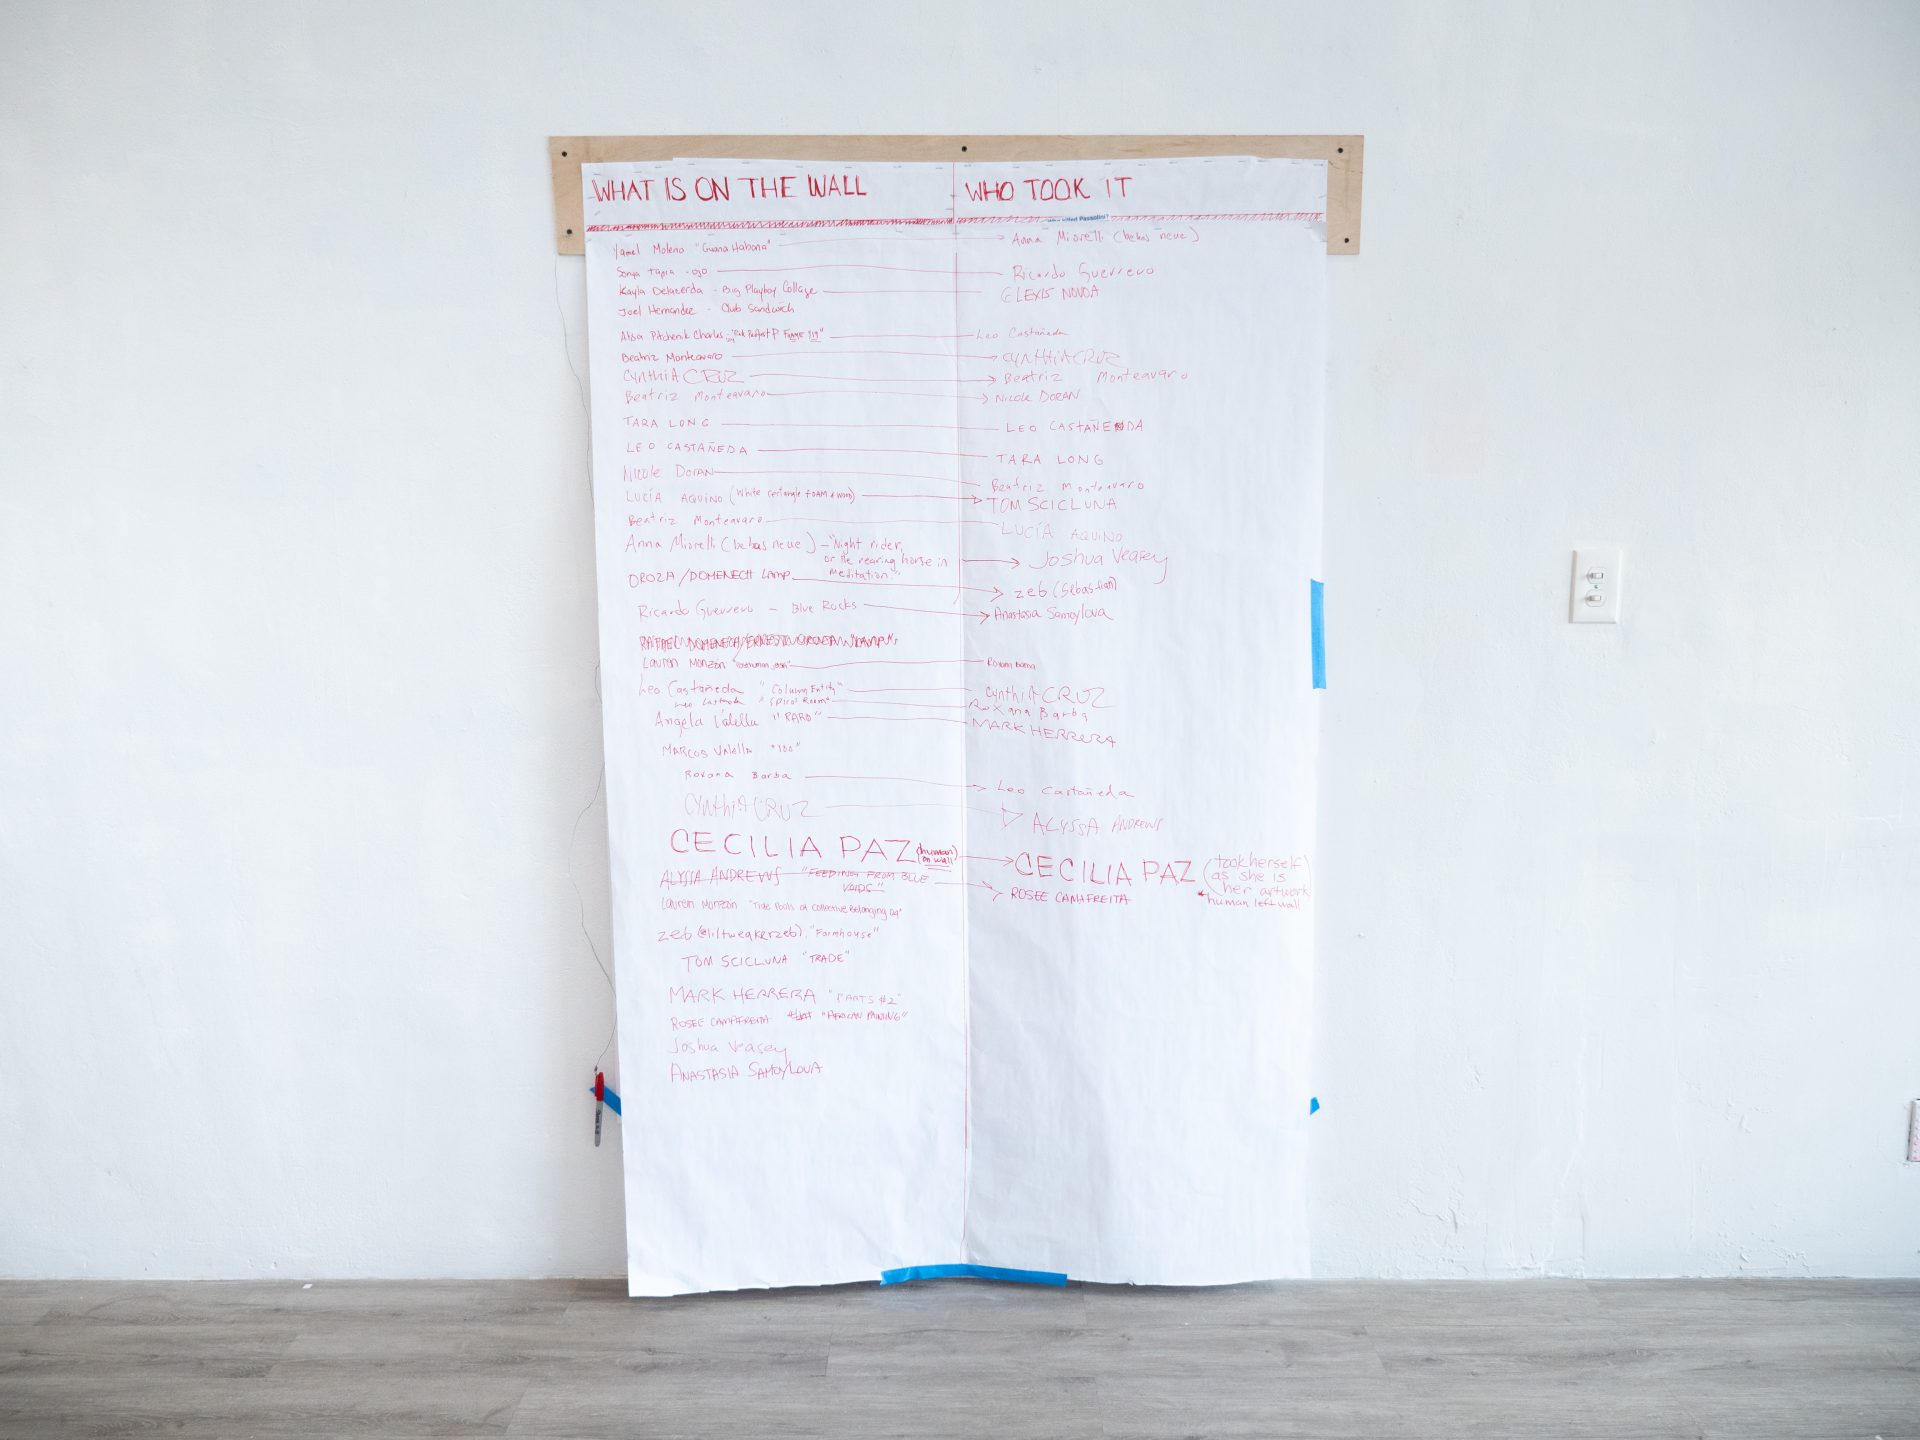 WHAT IS ON THE WALL WHO TOOK IT
Pasolini?
Yamel Molena "Guana Habana" Anna Miorelli (bebas neue)
Sonya Tapia - ojo Ricardo Guerrero
Kayla Delacerda - Big Playboy Collage GLEXIS NOVOA
Joel Hernandez - Club Sandwich
Pitchenik Charles Leo Castañeda
Beatriz Monteavaro CYNTHIA CRUZ
CYNTHIA CRUZ Beatriz Monteavaro
Beatriz Monteavaro NICOLE DORAN
TARA LONG LEO CASTAÑEDA
LEO CASTAÑEDA TARA LONG
Nicole DORAN Beatriz Monteavaro
LUCÍA AQUINO (White rectangle FOAM & WOOD) TOM SCICLUNA
Beatriz Monteavaro LUCÍA AQUINO
Anna Miorelli (bebas neue) - "Night rider,
or the rearing horse in Joshua Veasey
meditation."
OROZA/DOMENECH LAMP zeb (Sebastian)
Ricardo Guerrero - Blue Rocks Anastasia Samoylova
RAFAEL DOMENECH/ERNESTO OROZA "LAMP"
Lauren Monzón Roxana Barba
Leo Castañeda "Column Entity" CYNTHIA CRUZ
Leo Castañeda "Spiral Room" Roxana Barba
Angela Valella "RARO" MARK HERRERA
MARCOS Valella "100"
Roxana Barba Leo Castañeda
CYNTHIA CRUZ ALYSSA ANDREWS
CECILIA PAZ (human on wall) CECILIA PAZ (took herself as she is her artwork)
*human left wall
ALYSSA ANDREWS "FEEDING FROM BLUE ROSEE CAMAFREITA
VOIDS"
Lauren Monzón "Tide Pools of Collective Belonging 04"
zeb (@liltweakerzeb). "Farmhouse"
TOM SCICLUNA "TRADE"
MARK HERRERA "PARTS #2"
ROSEE CAMAFREITA "AFRICAN PAINING"
Joshua Veasey
ANASTASIA SAMOYLOVA